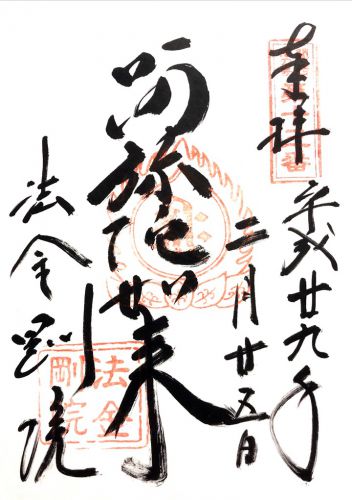 奉拝
平成廿九年
二月廿五日
阿弥陀如来
法金剛院
法金
剛院